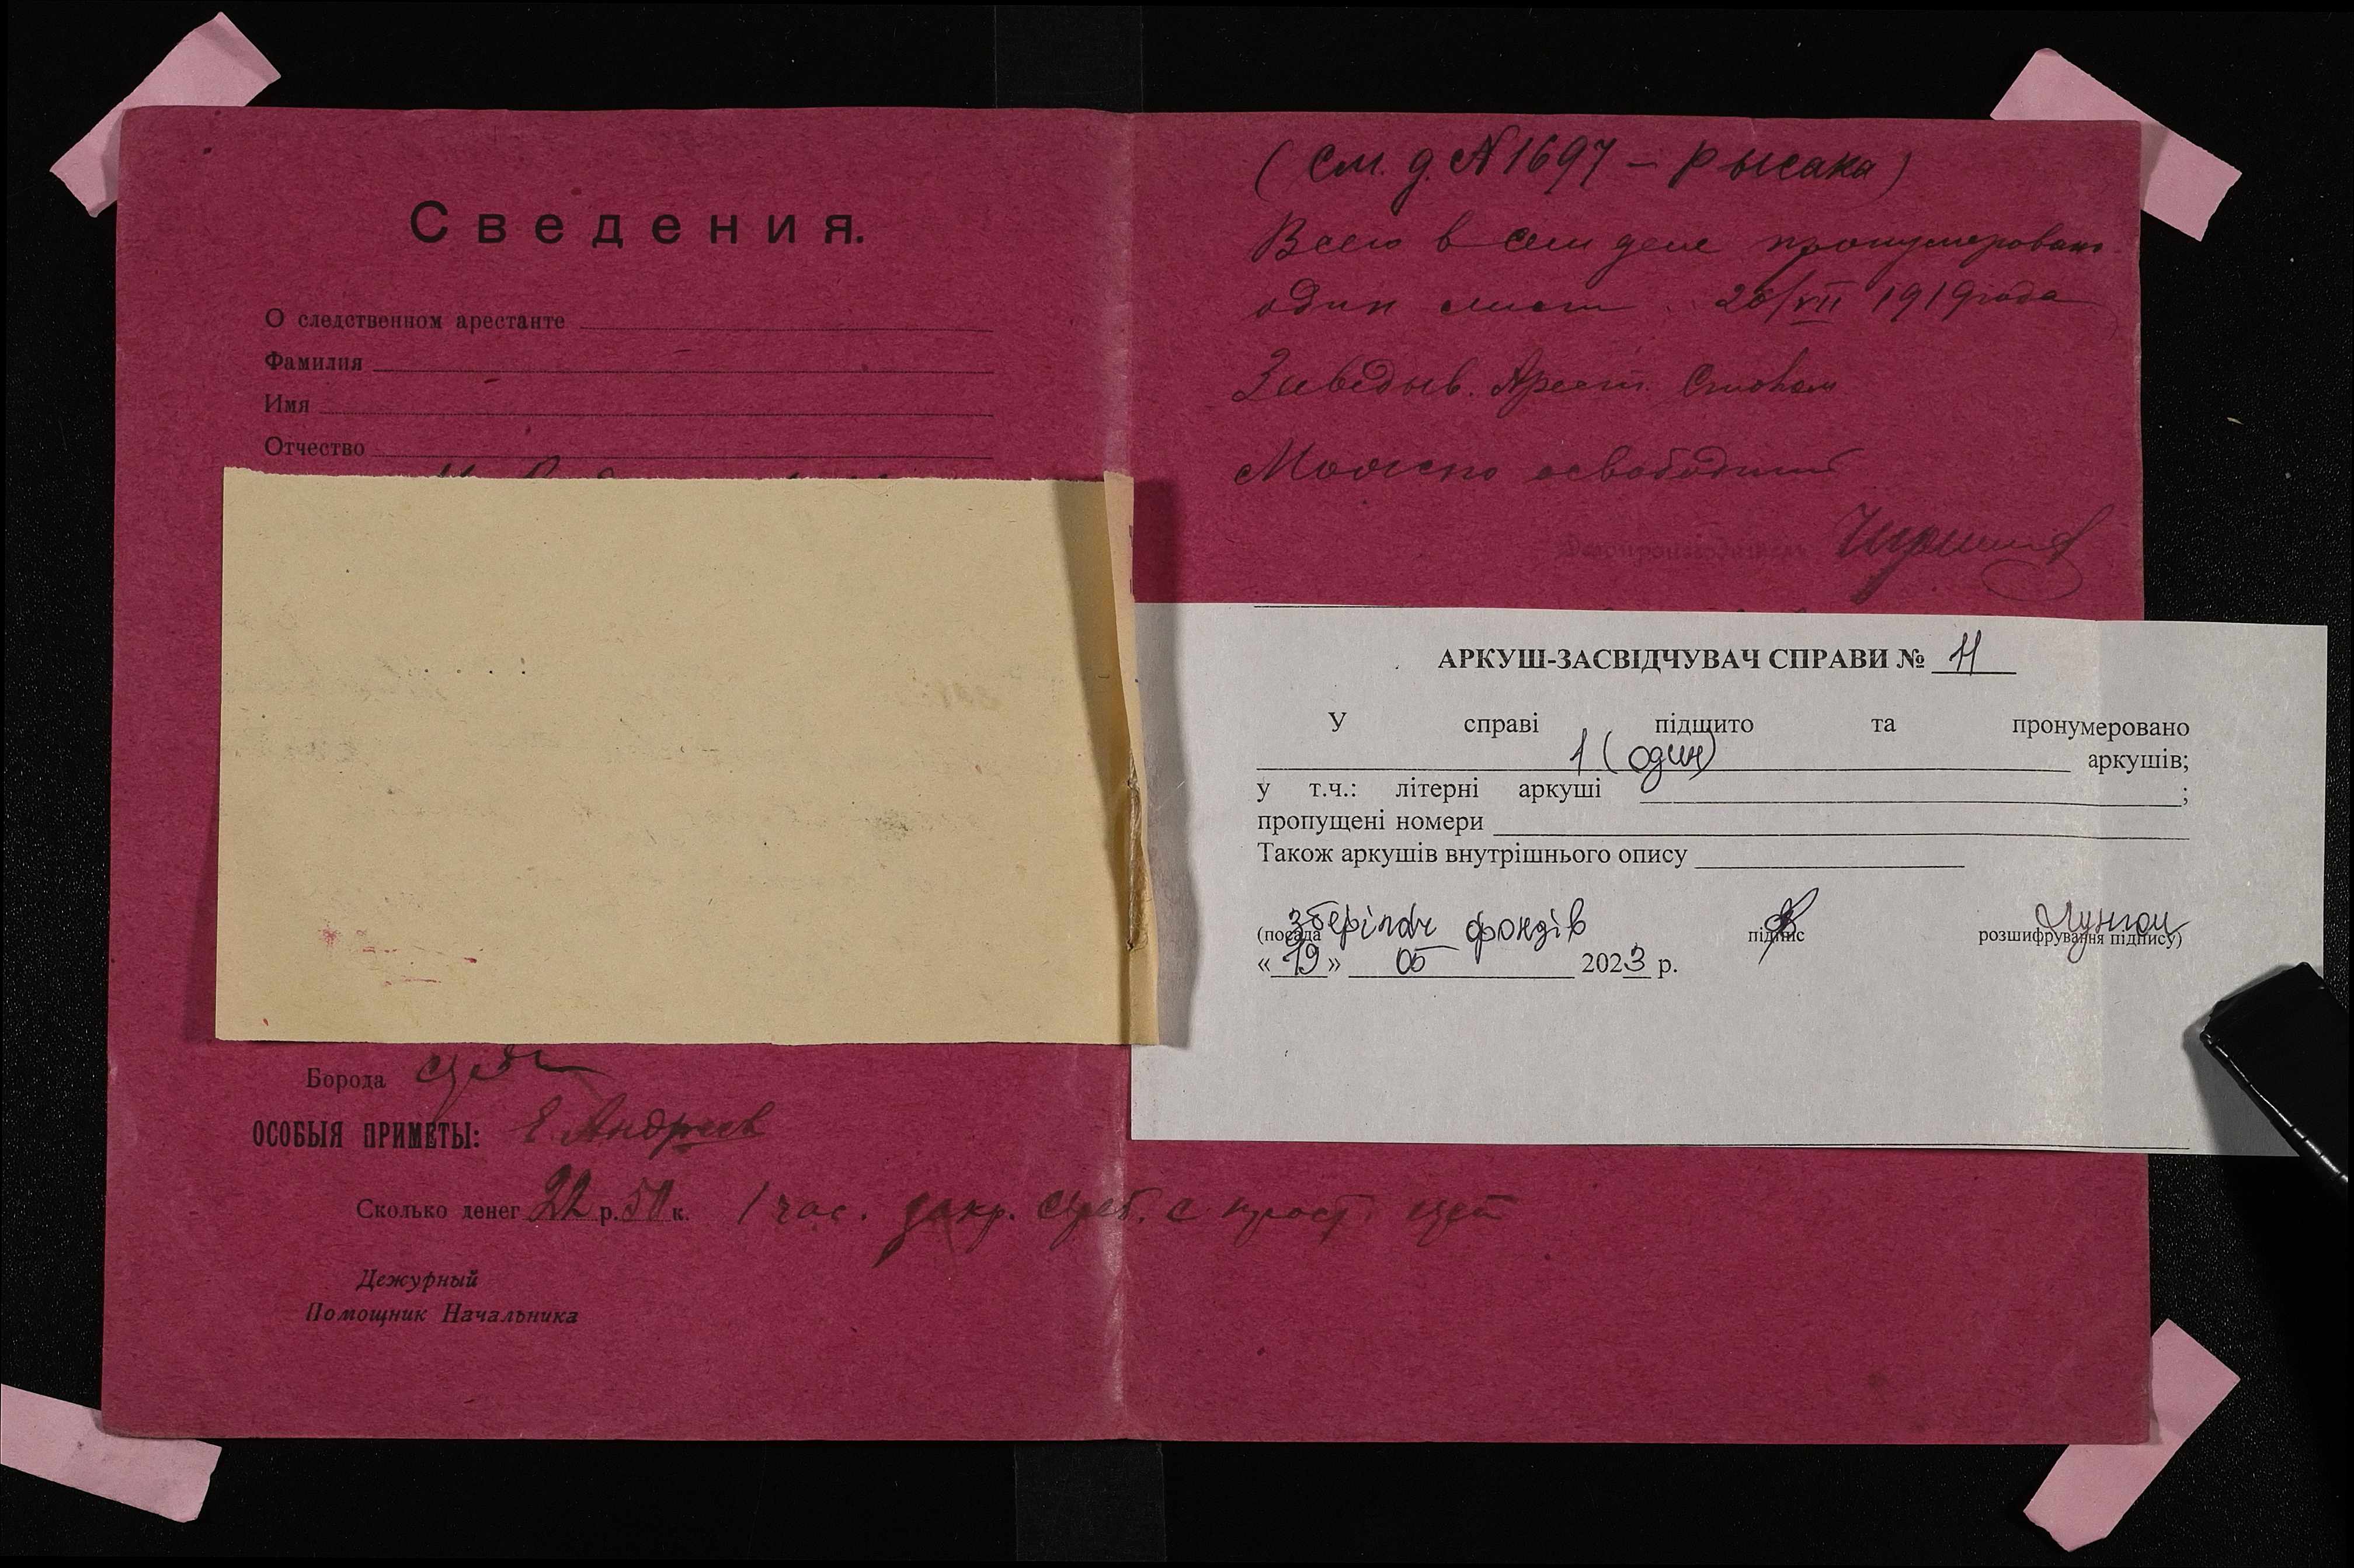 Сведения.
О следственном арестанте
Фамилия
Имя
Отчество
Борода
ОСОБЫЯ ПРИМЕТЫ: Е Андреев
Сколько денег 22 р. 50 к. 1 час. с
Дежурный
Помощник Начальника
(См. д. № 1697 – Рысака)
Всего в сем деле пронумеровано
один лист. 26/VII 1919 года
Заведыв. Арест. Столом
Можно освободить
Делопроизводитель
АРКУШ-ЗАСВІДЧУВАЧ СПРАВИ № 11
У справі підшито та пронумеровано
1 (один) аркушів;
у т.ч.: літерні аркуші ;
пропущені номери
Також аркушів внутрішнього опису
зберігач фондів
(посада підпис розшифрування підпису)
« 19 » 05 2023 р.